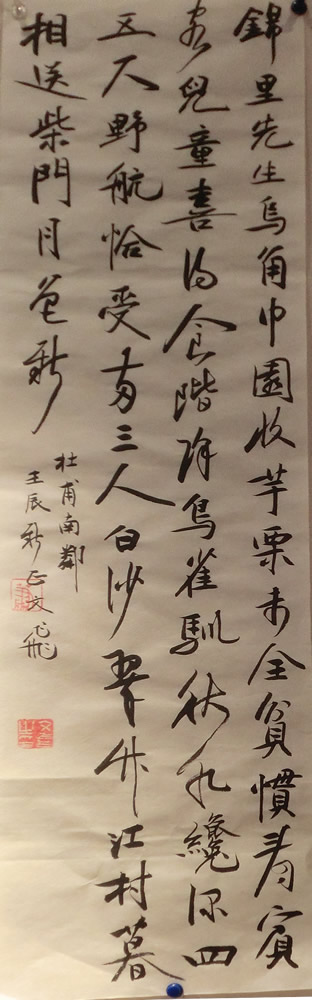 錦里先生烏角巾園收芋栗未全貧慣看賓
客兒童喜得食階除鳥雀馴秋水纔深四
五尺野航恰受兩三人白沙翠竹江村暮
相送柴門月色新
杜甫南鄰
壬辰新正文飛